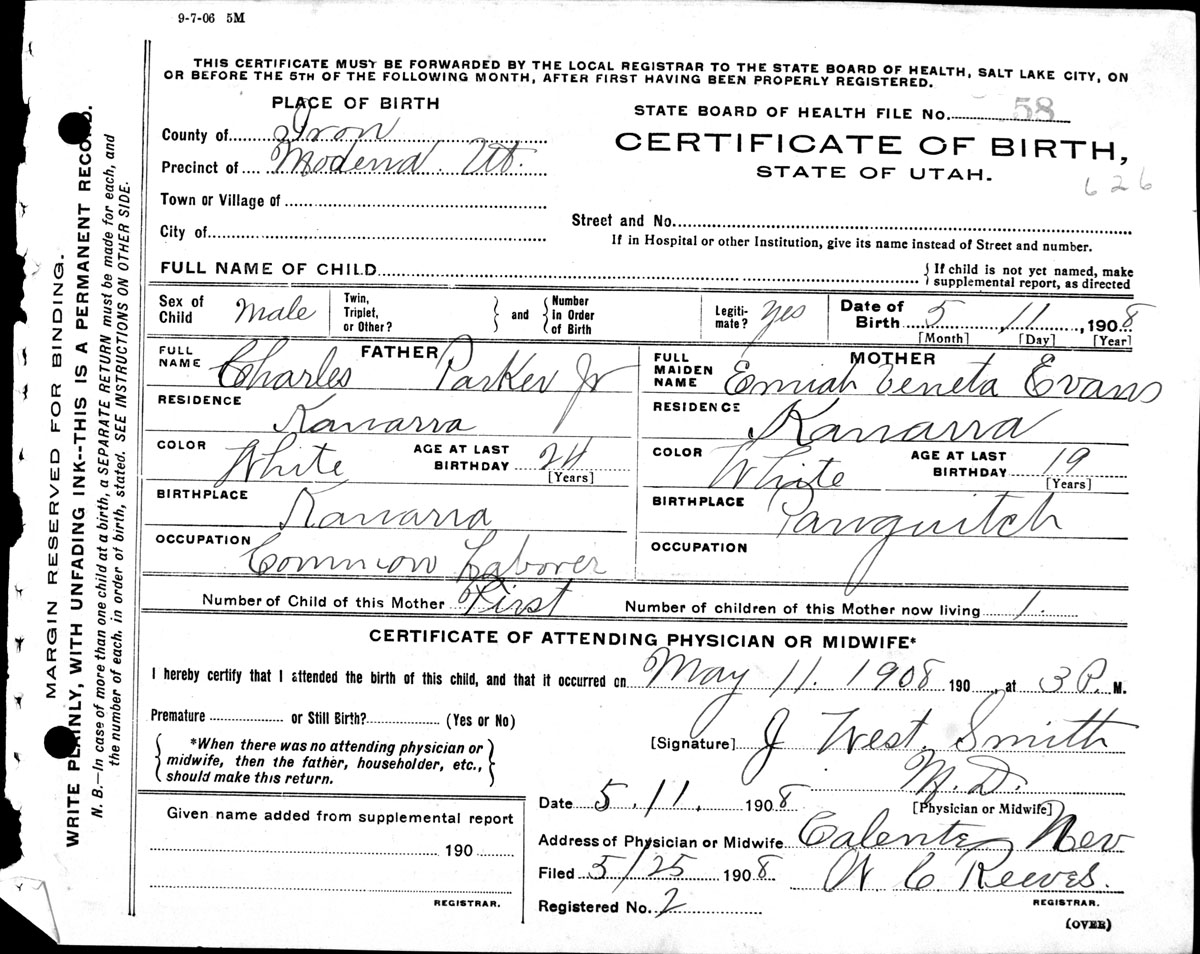 9-7-06 5M
THIS CERTIFICATE MUST BE FORWARDED BY THE LOCAL REGISTRAR TO THE STATE BOARD OF HEALTH, SALT LAKE CITY, ON
OR BEFORE THE 5TH OF THE FOLLOWING MONTH, AFTER FIRST HAVING BEEN PROPERLY REGISTERED.
MARGIN RESERVED FOR BINDING.
WRITE PLAINLY, WITH UNFADING INK--THIS IS A PERMANENT RECORD.
N. B.—In case of more than one child at a birth, a SEPARATE RETURN must be made for each, and
the number of each, in order of birth, stated. SEE INSTRUCTIONS ON OTHER SIDE.
PLACE OF BIRTH
County of Iron
Precinct of Modena. Ut.
Town or Village of
City of
STATE BOARD OF HEALTH FILE No. 58
CERTIFICATE OF BIRTH,
STATE OF UTAH.
626
Street and No.
If in Hospital or other Institution, give its name instead of Street and number.
FULL NAME OF CHILD
{ If child is not yet named, make
supplemental report, as directed
Sex of Child Male
Twin, Triplet, or Other? } and { Number in Order of Birth
Legiti-mate? Yes
Date of Birth 5 11, 1908
[Month] [Day] [Year]
FATHER
FULL NAME Charles Parker Jr
RESIDENCE Kanarra
COLOR White AGE AT LAST BIRTHDAY 24
[Years]
BIRTHPLACE Kanarra
OCCUPATION Common Laborer
MOTHER
FULL MAIDEN NAME Emiah Veneta Evans
RESIDENCE Kanarra
COLOR White AGE AT LAST BIRTHDAY 19
[Years]
BIRTHPLACE Panguitch
OCCUPATION
Number of Child of this Mother First Number of children of this Mother now living 1.
CERTIFICATE OF ATTENDING PHYSICIAN OR MIDWIFE*
I hereby certify that I attended the birth of this child, and that it occurred on May 11. 1908 190 , at 3 P. M.
Premature or Still Birth? (Yes or No)
{ *When there was no attending physician or
midwife, then the father, householder, etc.,
should make this return. }
[Signature] J West Smith
M.D.
[Physician or Midwife]
Date 5.11. 1908
Given name added from supplemental report
190
REGISTRAR.
Address of Physician or Midwife Calente Nev
Filed 5/25 1908 W C Reeves.
REGISTRAR.
Registered No. 2
(OVER)